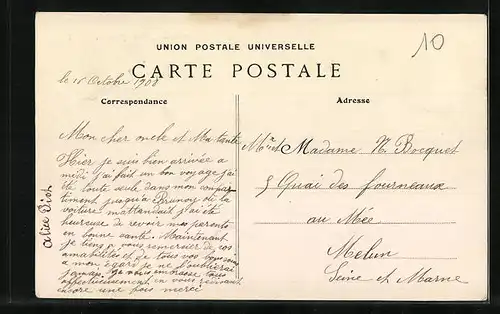 10
UNION POSTALE UNIVERSELLE
CARTE POSTALE
Correspondance
Adresse
le 15 Octobre 1908
Mon cher oncle et Ma tante
Hier je suis bien arrivée a
midi j'ai fait un bon voyage j'ai
été toute seule dans mon compar-
timent jusqu'a Brunoy de la
voiture m'attendait j'ai été
heureuse de revoir mes parents
en bonne santé. Maintenant
je tiens a vous remercier de vos
amabilités et de tous vos bons soins
a mon égard je ne l'oublierai
jamais. Je vous embrasse tous
affectueusement en vous remerciant
encore une fois merci
Alice
Mr et Madame N. Bocquet
5 Quai des fourneaux
au Mée
Melun
Seine et Marne